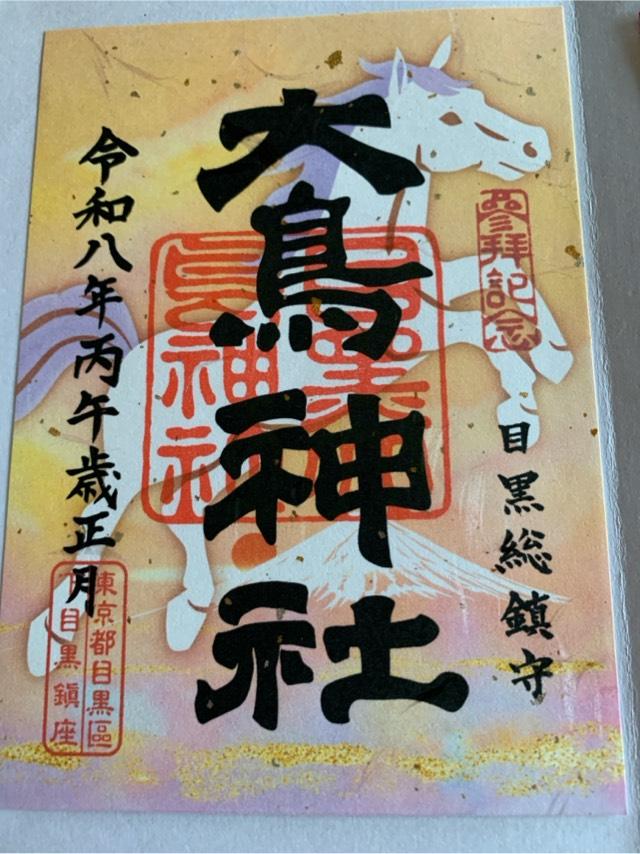 參拜記念
目黒総鎮守
大鳥神社
令和八年丙午歳正月
東京都目黒區
下目黒鎮座